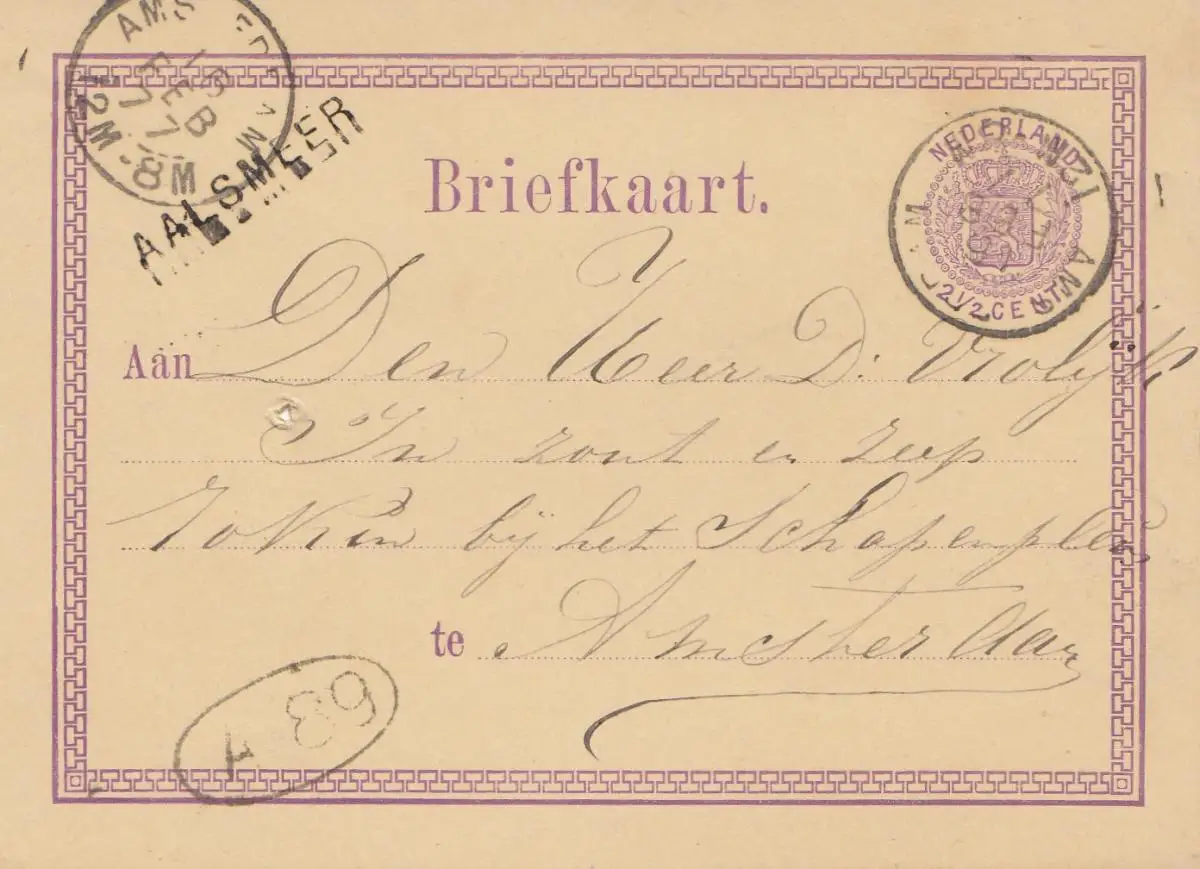 AMSTERDAM
FEB
77
8M
12M
AALSMEER
Briefkaart.
NEDERLAND
2½ CENT
Aan Den Heer D: Vrolijk
In zout en zeep
Rokin bij het Schapenplein
te Amsterdam
63
A